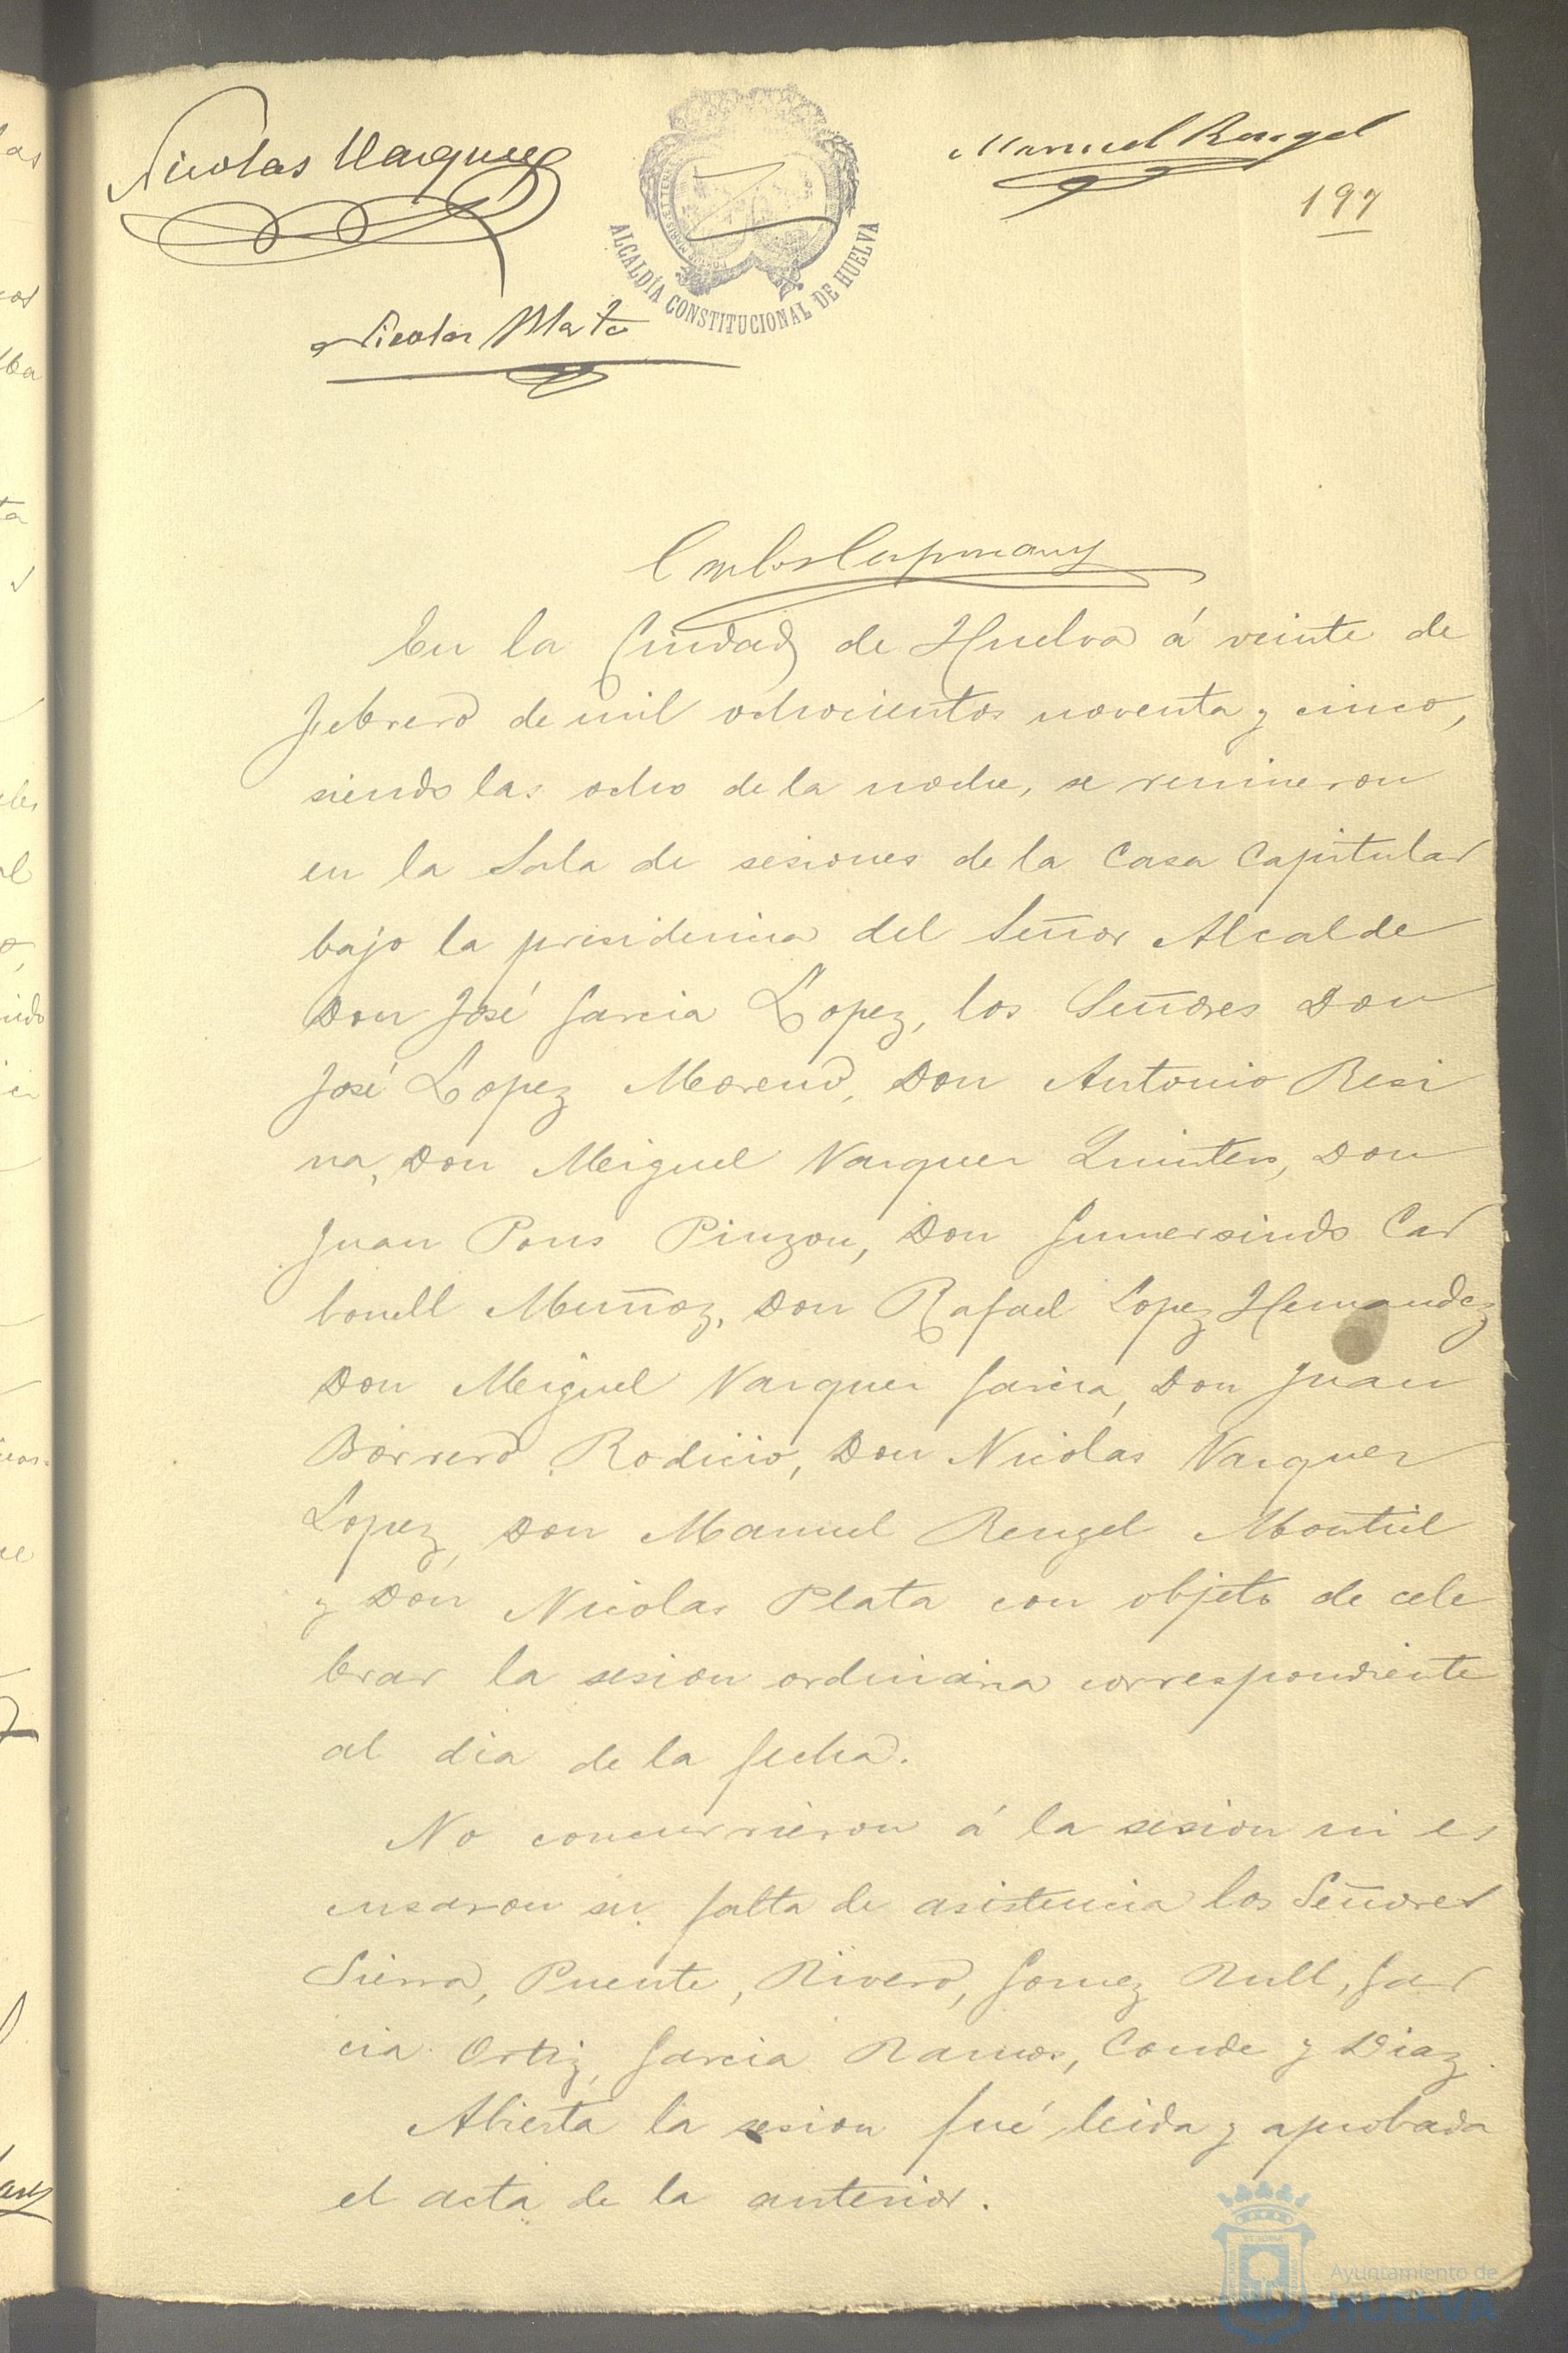 Nicolas Vazquez
Manuel Rengel
197
ALCALDÍA CONSTITUCIONAL DE HUELVA
Nicolas Plata
Carlos Capmany
En la Ciudad de Huelva á veinte de
febrero de mil ochocientos noventa y cinco,
siendo las ocho de la noche, se reunieron
en la Sala de sesiones de la Casa Capitular
bajo la presidencia del Señor Alcalde
Don José Garcia Lopez, los Señores Don
José Lopez Moreno, Don Antonio Resi
na, Don Miguel Vazquez Quintero, Don
Juan Pons Pinzon, Don Gumersindo Car
bonell Muñoz, Don Rafael Lopez Hernandez
Don Miguel Vazquez Garcia, Don Juan
Borrero Rodicio, Don Nicolas Vazquez
Lopez, Don Manuel Rengel Montiel
y Don Nicolas Plata con objeto de cele
brar la sesion ordinaria correspondiente
al dia de la fecha.
No concurrieron á la sesion ni es
cusaron su falta de asistencia los Señores
Sierra, Puente, Rivero, Gomez Rull, Gar
cia Ortiz, Garcia Ramos, Conde y Diaz.
Abierta la sesion fué leida y aprobada
el acta de la anterior.
Ayuntamiento de
HUELVA